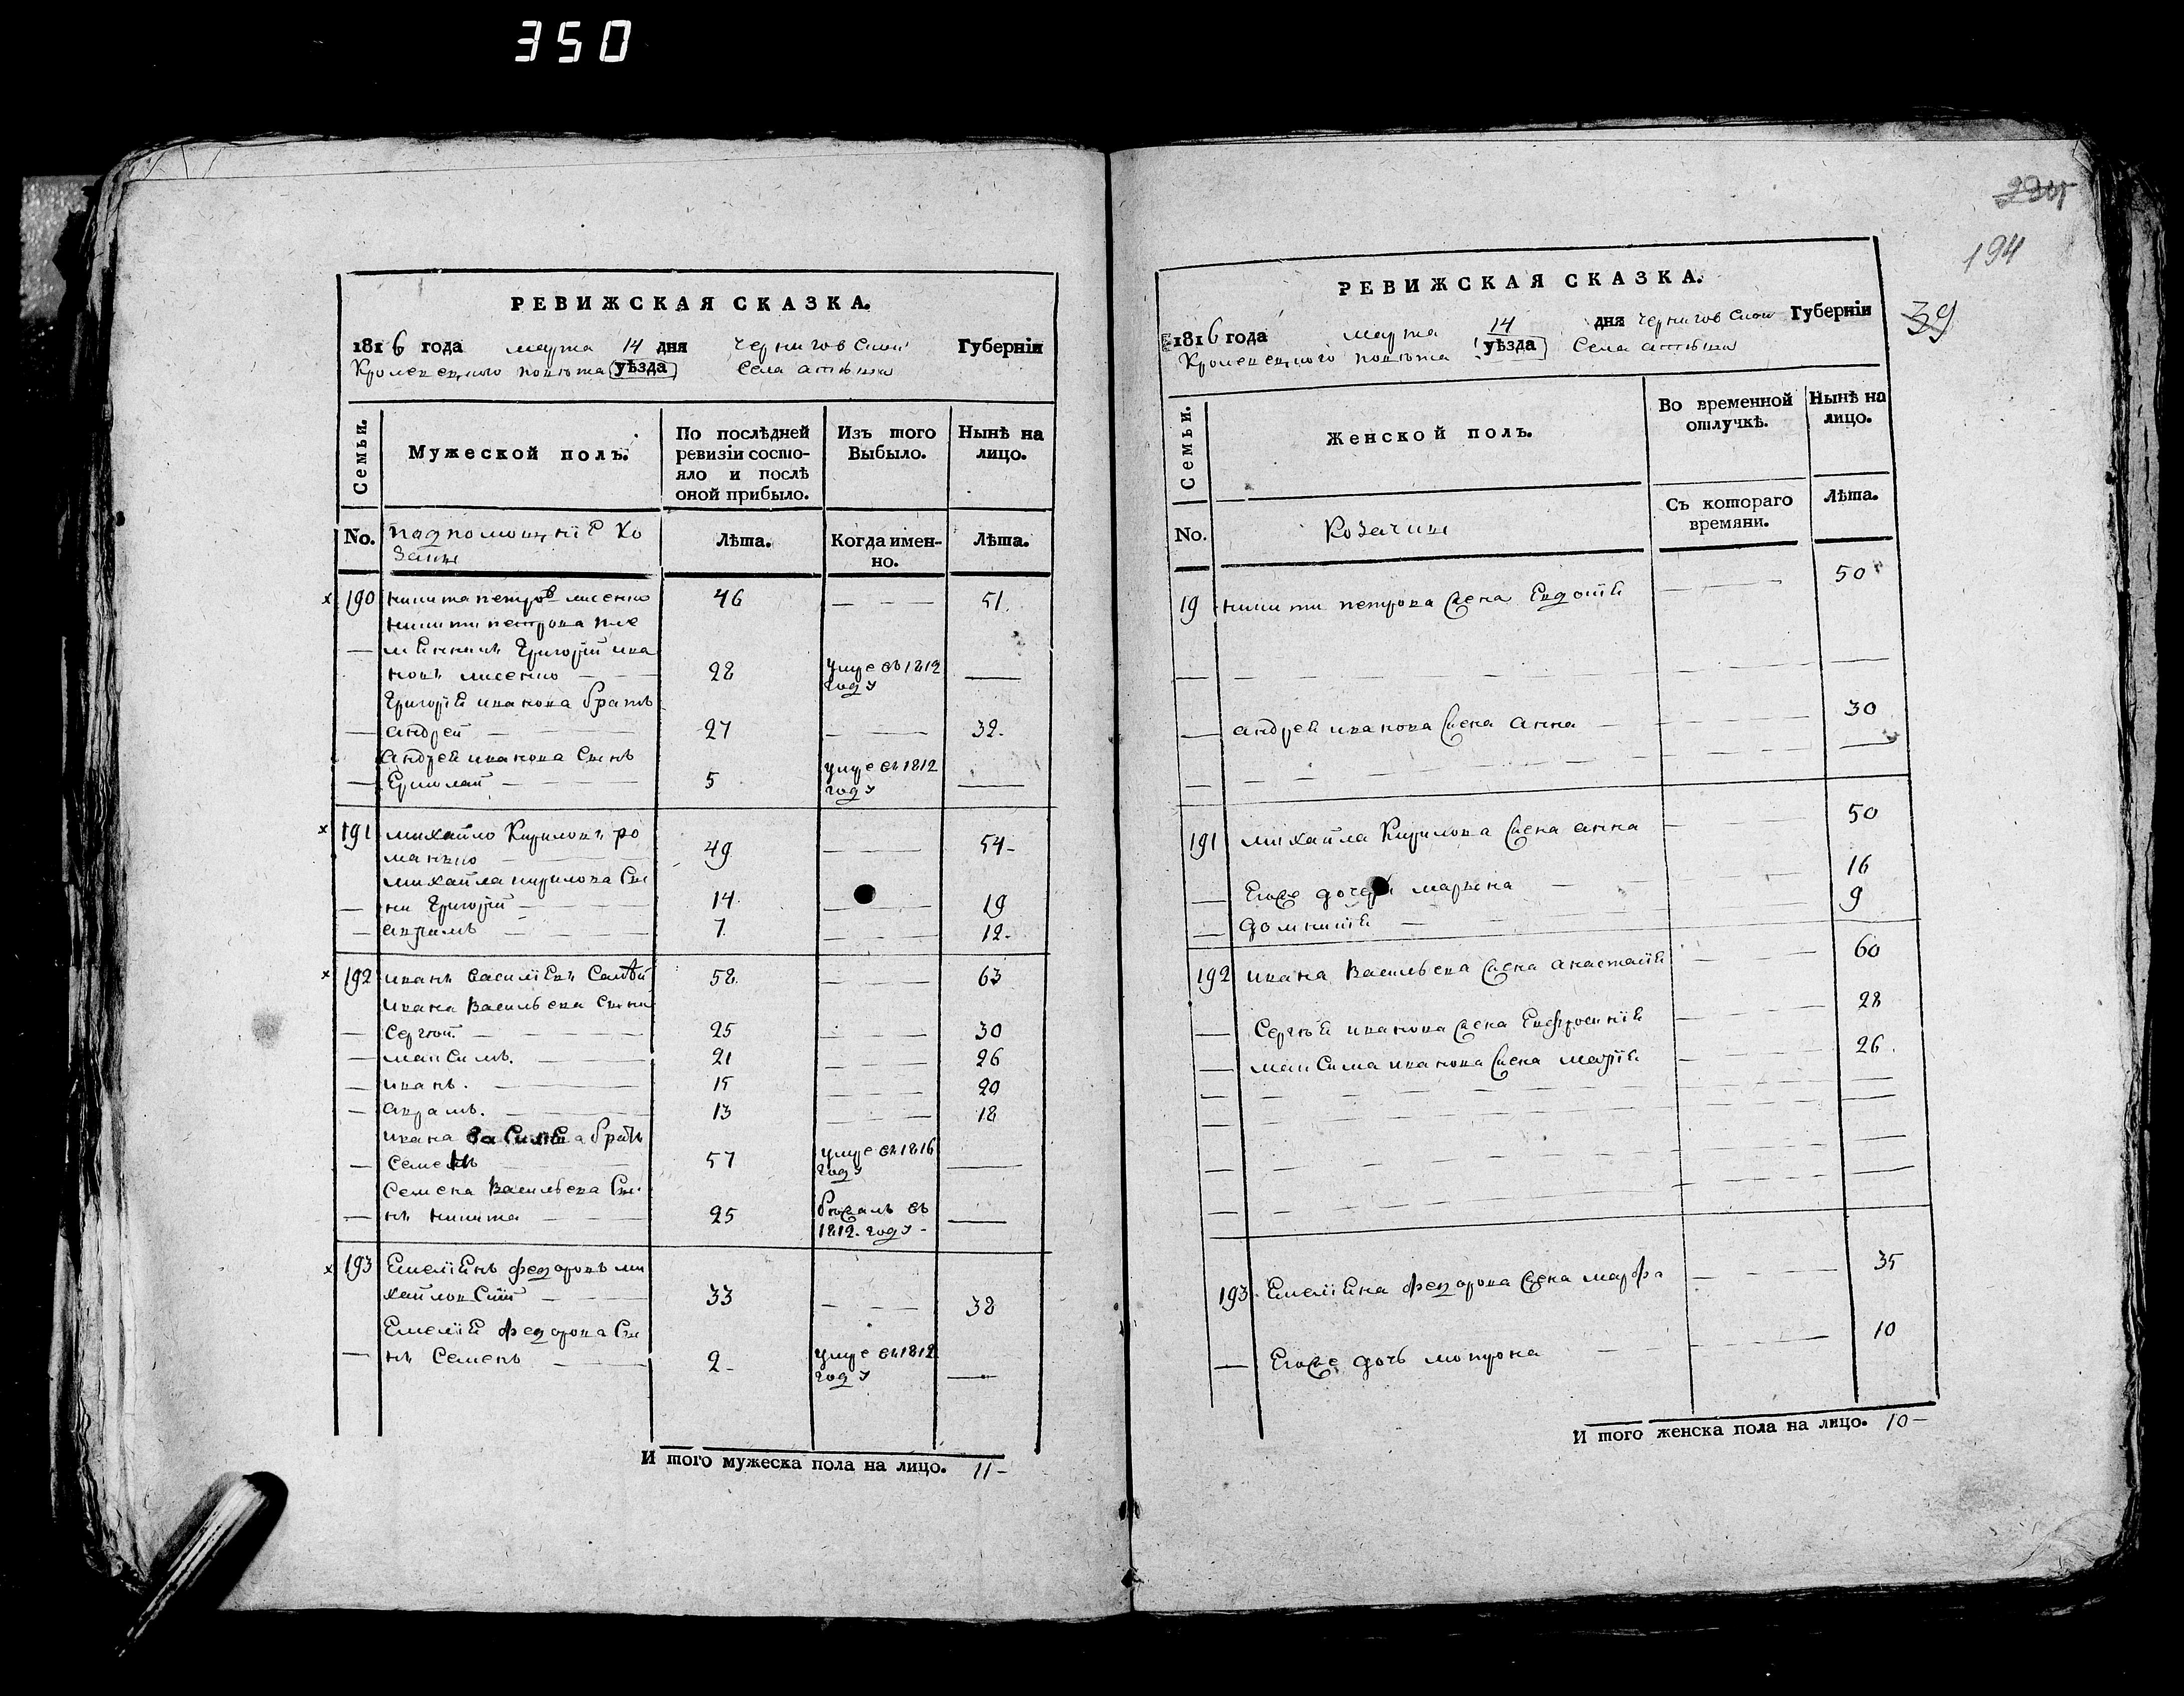 350
РЕВИЖСКАЯ СКАЗКА.
1816 года марта 14 дня Черниговской Губерніи
Кролевецкого повѣта уѣзда Села
Семьи.
Мужеской полъ.
По послѣдней ревизіи состо-
яло и послѣ
оной прибыло.
Изъ того
Выбыло.
Нынѣ на
лицо.
No.
Подпомощніе Ко
заки
Лѣта.
Когда имен-
но.
Лѣта.
190 никита петровъ лисенко 46 — — — 51.
никити петрова пле
— мѣнникъ Григорій ива
новъ лисенко — 28 умре въ 1812 году —
Григорія иванова братъ
— андрей — 27 — — 32.
Андрея иванова Сынъ
— Ермолай — 5 умре въ 1812 году —
191 михайло Кириловъ ро
манко — 49 — — 54-
михайла кирилова Сы
— ни Григорій — 14 — — 19
— аврамъ — 7 — — 12.
192 иванъ василіевъ 58. — — 63
ивана васильева Сыни
— Сергѣй. — 25 — — 30
— максимъ. — 21 — — 26
— иванъ. — 15 — — 20
— аврамъ. — 13 — — 18
ивана братъ
— Семенъ 57 умре въ 1816 году —
Семена васильева Сы
— нъ никита — 25 бѣжалъ въ 1812. году - —
193 Емеліянъ федоровъ ми
хайловскій — 33 — — — 38
Емелія федорова Сы
— нъ Семенъ — 2 - умре въ 1812 году —
И того мужеска пола на лицо. 11-
194
39
РЕВИЖСКАЯ СКАЗКА.
1816 года марта 14 дня Черниговской Губерніи
Кролевецкого повѣта уѣзда Села
Семьи.
Женской полъ.
Во временной
отлучкѣ.
Нынѣ на
лицо.
Съ котораго
времяни.
Лѣта.
No.
Козачки
19 никити петрова жена Евдокія — — 50
— — — — —
— андрея иванова жена анна — — 30
— — — — —
191 михайла Кирилова жена анна — — 50
— Егоже дочери марьяна — 16
— домникія — 9
192 ивана васильева жена анастасія — — 60
— Сергѣя иванова жена Евфросинія — — 28
— максима иванова жена марія — — 26.
— — — — —
— — — — —
— — — — —
— — — — —
193 Емеліяна федорова жена марфа — — 35
— Егоже дочь мотрона — — 10
И того женска пола на лицо. 10-